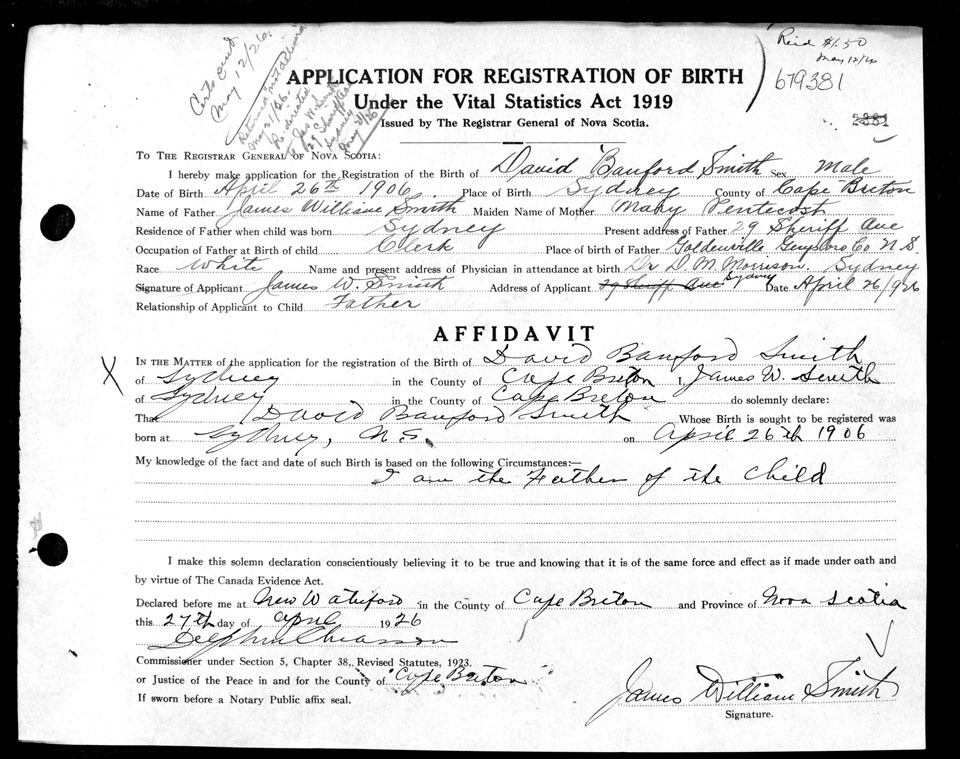 Certs sent
May 12/26
Returned not delivered
May 21/26.
to Jas W. Smith
29 Sheriff Ave
Sydney
May 21/26
Rec'd $1.50
May 12/26
679381
2881
APPLICATION FOR REGISTRATION OF BIRTH
Under the Vital Statistics Act 1919
Issued by The Registrar General of Nova Scotia.
TO THE REGISTRAR GENERAL OF NOVA SCOTIA:
I hereby make application for the Registration of the Birth of David Banford Smith Sex Male
Date of Birth April 26th 1906 Place of Birth Sydney County of Cape Breton
Name of Father James William Smith Maiden Name of Mother Mary Pentecost
Residence of Father when child was born Sydney Present address of Father 29 Sheriff Ave
Occupation of Father at Birth of child Clerk Place of birth of Father Goldenville Guysboro Co N S
Race White Name and present address of Physician in attendance at birth Dr D. M. Morrison. Sydney
Signature of Applicant James W. Smith Address of Applicant 29 Sheriff Ave Sydney Date April 26/926
Relationship of Applicant to Child Father
AFFIDAVIT
X IN THE MATTER of the application for the registration of the Birth of David Banford Smith
of Sydney in the County of Cape Breton I, James W. Smith
of Sydney in the County of Cape Breton do solemnly declare:
That David Banford Smith Whose Birth is sought to be registered was
born at Sydney, N.S. on April 26th 1906
My knowledge of the fact and date of such Birth is based on the following Circumstances:—
I am the Father of the Child
I make this solemn declaration conscientiously believing it to be true and knowing that it is of the same force and effect as if made under oath and
by virtue of The Canada Evidence Act.
Declared before me at New Waterford in the County of Cape Breton and Province of Nova Scotia
this 27th day of April 1926
Delphin Chiasson
Commissioner under Section 5, Chapter 38, Revised Statutes, 1923.
or Justice of the Peace in and for the County of Cape Breton
If sworn before a Notary Public affix seal.
James William Smith
Signature.